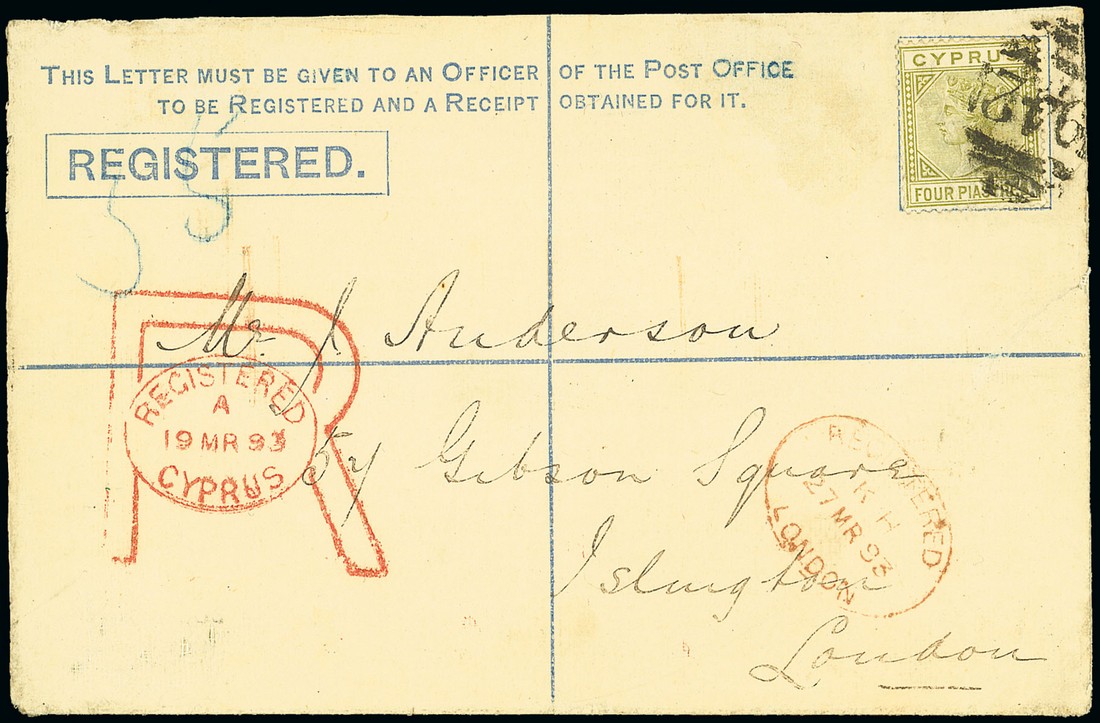 THIS LETTER MUST BE GIVEN TO AN OFFICER OF THE POST OFFICE
TO BE REGISTERED AND A RECEIPT OBTAINED FOR IT.
REGISTERED.
CYPRUS
942
FOUR PIASTRES
55
R
Mr. J. Anderson
REGISTERED
A
19 MR 93
CYPRUS
57 Gibson Square
REGISTERED
K H
27 MR 93
LONDON
Islington
London